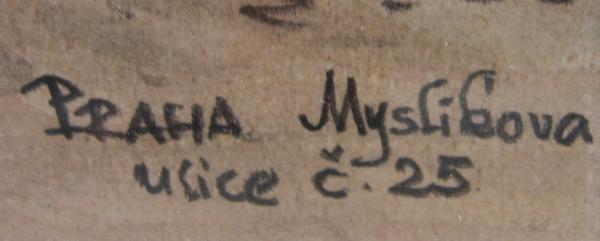 PRAHA Myslikova
ulice č. 25